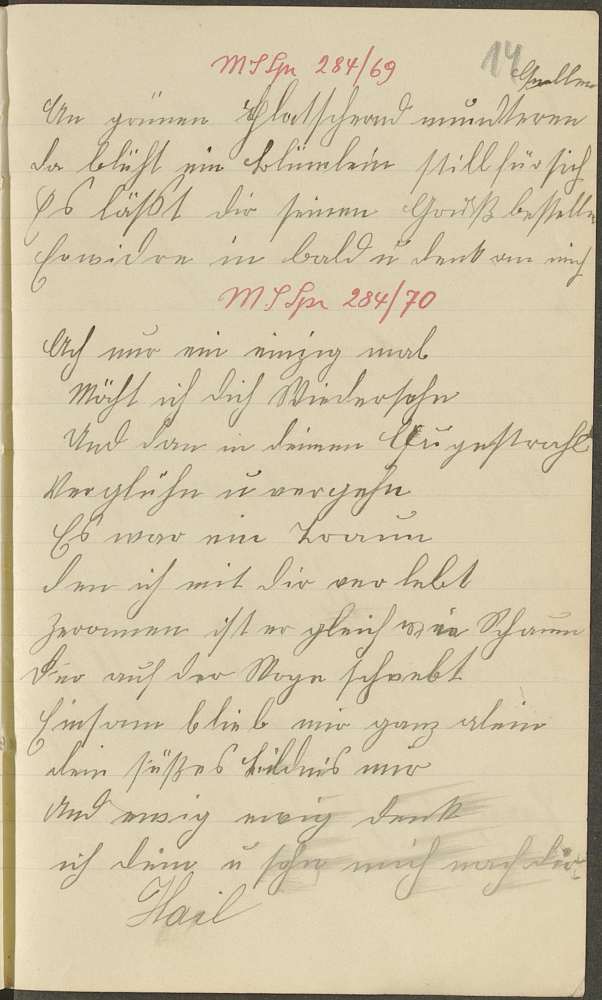 MSSpr 284/69
14
Quellen
An grünen Platschernd munteren
da blüht ein blümlein still für sich
Es läßt dir seinen Gruß bestellen
Erwidre in bald u denk an mich
MSSpr 284/70
Ach nur ein einzig mal
Möcht ich dich Wiedersehn
Und dan in deinem Augestrahl
Verglühn u vergehn
Es war ein Traum
den ich mit dir verlebt
zeronnen ist er gleich wie Schaum
Der auf der Woge schwebt
Einsam blieb mir ganz alein
dein süßes bildnis nur
Und ewig ewig denk
ich dein u sehn mich nach dir